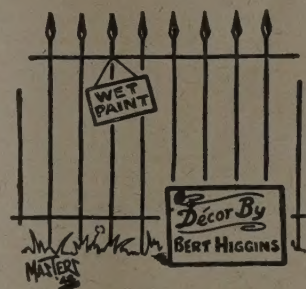 WET
PAINT
Décor By
BERT HIGGINS
MASTERS